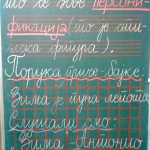 што се зове персони-
фикација (то је стил-
ска фигура).
Порука приче - бајке:
Зима је пуна лепота
Слушали смо:
"Зима" - Антонио